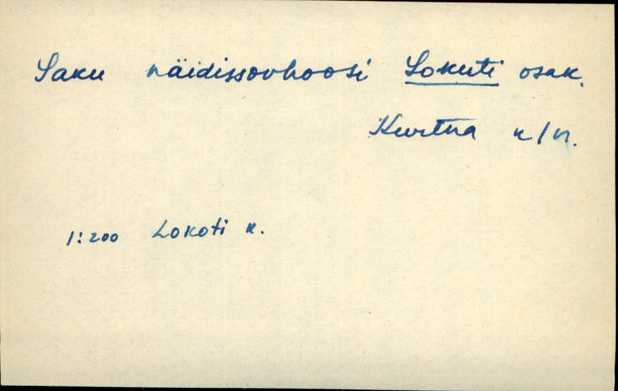 Saku näidissovhoosi Lokuti osak.
Kurtna k/n.
1:200 Lokoti k.